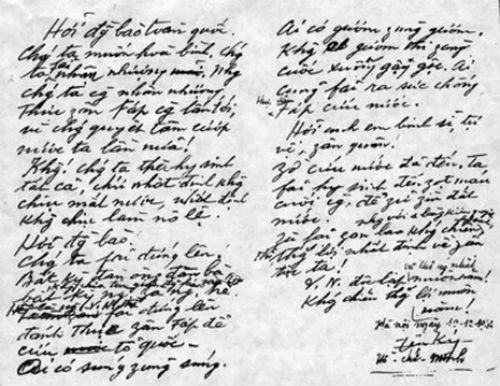 Hỡi đg bào toàn quốc.
Chg ta muốn hoà bình, chg
ta fải nhân nhượng. Nhg
chg ta cg nhân nhượng,
thực zân Fáp cg lấn tới,
vì chg quyết tâm cướp
nước ta lần nữa!
Khg! chg ta thà hy sinh
tất cả, chứ nhất định khg
chịu mất nước, nhất định
khg chịu làm nô lệ!
Hỡi đg bào!
Chg ta fải đứng lên!
Bất kỳ đàn ông đàn bà
bất kỳ
fải đứng lên
đánh thực zân Fáp để
cứu tổ quốc.
Ai có súng zùng súng.
Ai có gươm zùng gươm.
Khg có gươm thì zùng
cuốc xuổng gậy gộc. Ai
cũng fải ra sức chống
Fáp cứu nước.
Hỡi anh em binh sĩ, tự
vệ, zân quân!
Zờ cứu nước đã đến. Ta
fải hy sinh đến zọt máu
cuối cg, để zữ zìn đất
nước.
Zù fải zan lao khg chiến,
thg lợi nhất định về zân
tộc ta!
V.N. độc lập muôn năm!
và thống nhất
Khg chiến thg lợi muôn
năm!
Hà nội ngày
Hồ chí Minh